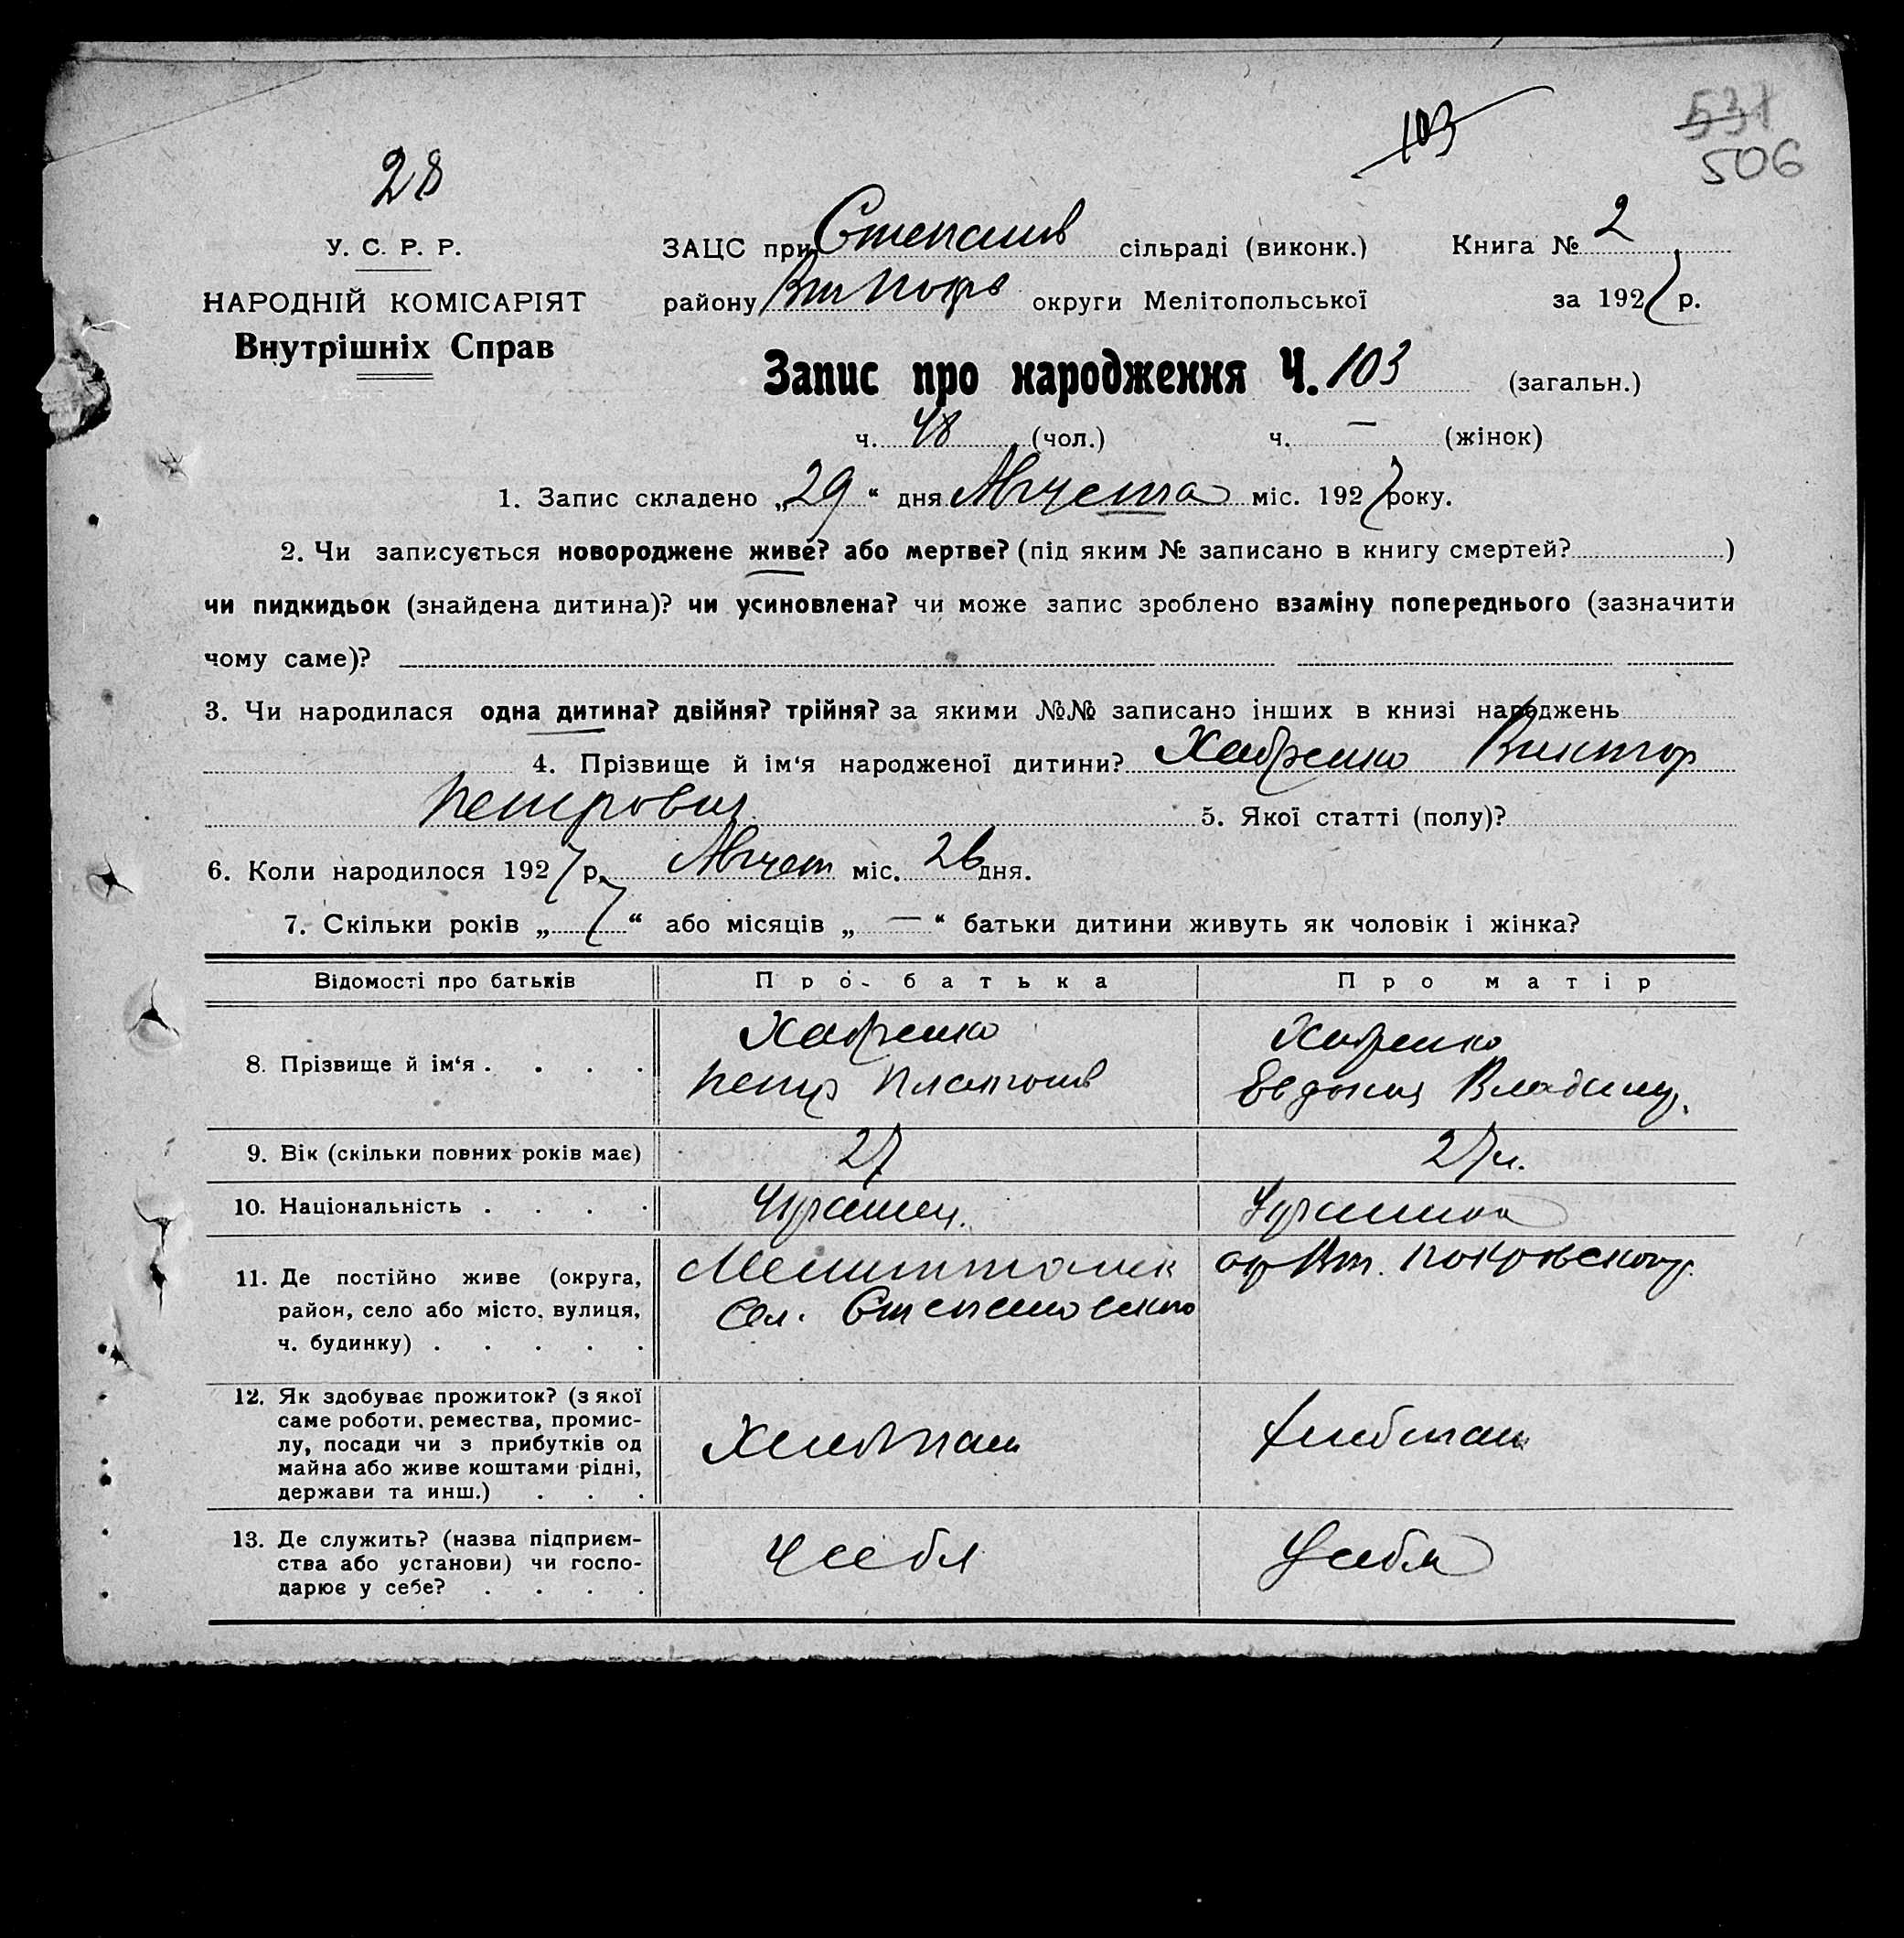 103
531
506
28
У. С. Р. Р.
НАРОДНІЙ КОМІСАРІЯТ
Внутрішніх Справ
ЗАЦС при Степанив сільраді (виконк.) Книга № 2
району Вт Покрв округи Мелітопольської за 1927 р.
Запис про народження Ч. 103 (загальн.)
ч. 48 (чол.) ч. — (жінок)
1. Запис складено „29“ дня Августа міс. 1927 року.
2. Чи записується новороджене живе? або мертве? (під яким № записано в книгу смертей? )
чи пидкидьок (знайдена дитина)? чи усиновлена? чи може запис зроблено взаміну попереднього (зазначити
чому саме)?
3. Чи народилася одна дитина? двійня? трійня? за якими №№ записано інших в книзі народжень
4. Прізвище й ім‘я народженої дитини? Виктор
Петрович 5. Якої статті (полу)?
6. Коли народилося 1927 р. Август міс. 26 дня.
7. Скільки років „7“ або місяців „—“ батьки дитини живуть як чоловік і жінка?
Відомості про батьків Про батька Про матір
8. Прізвище й ім‘я . . . .
Петр Платонов
Евдокия Владим.
9. Вік (скільки повних років має) 27 27 л.
10. Національність . . . . Украинец. Украинка
11. Де постійно живе (округа,
район, село або місто, вулиця,
ч. будинку) . . . . .
ок Вт. Покровского р.
Сел. Степановского
12. Як здобуває прожиток? (з якої
саме роботи, ремества, промис-
лу, посади чи з прибутків од
майна або живе коштами рідні,
держави та инш.) . . .
Хлебопаш Хлебопаш
13. Де служить? (назва підприєм-
ства або установи) чи госпо-
дарює у себе? . . . .
У себя У себя